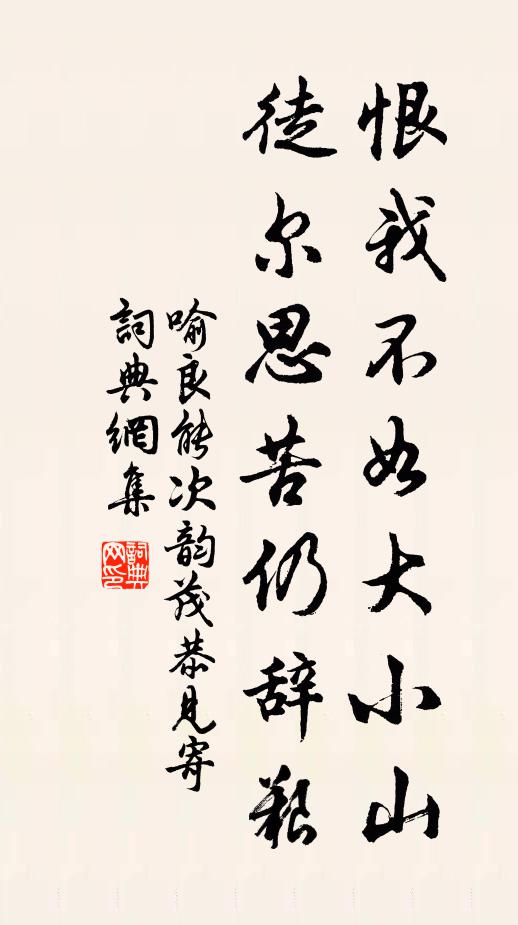 恨我不如大小山
徒尔思苦仍辞艰
喻良能次韵茂恭见寄
詞典網集
詞典网印